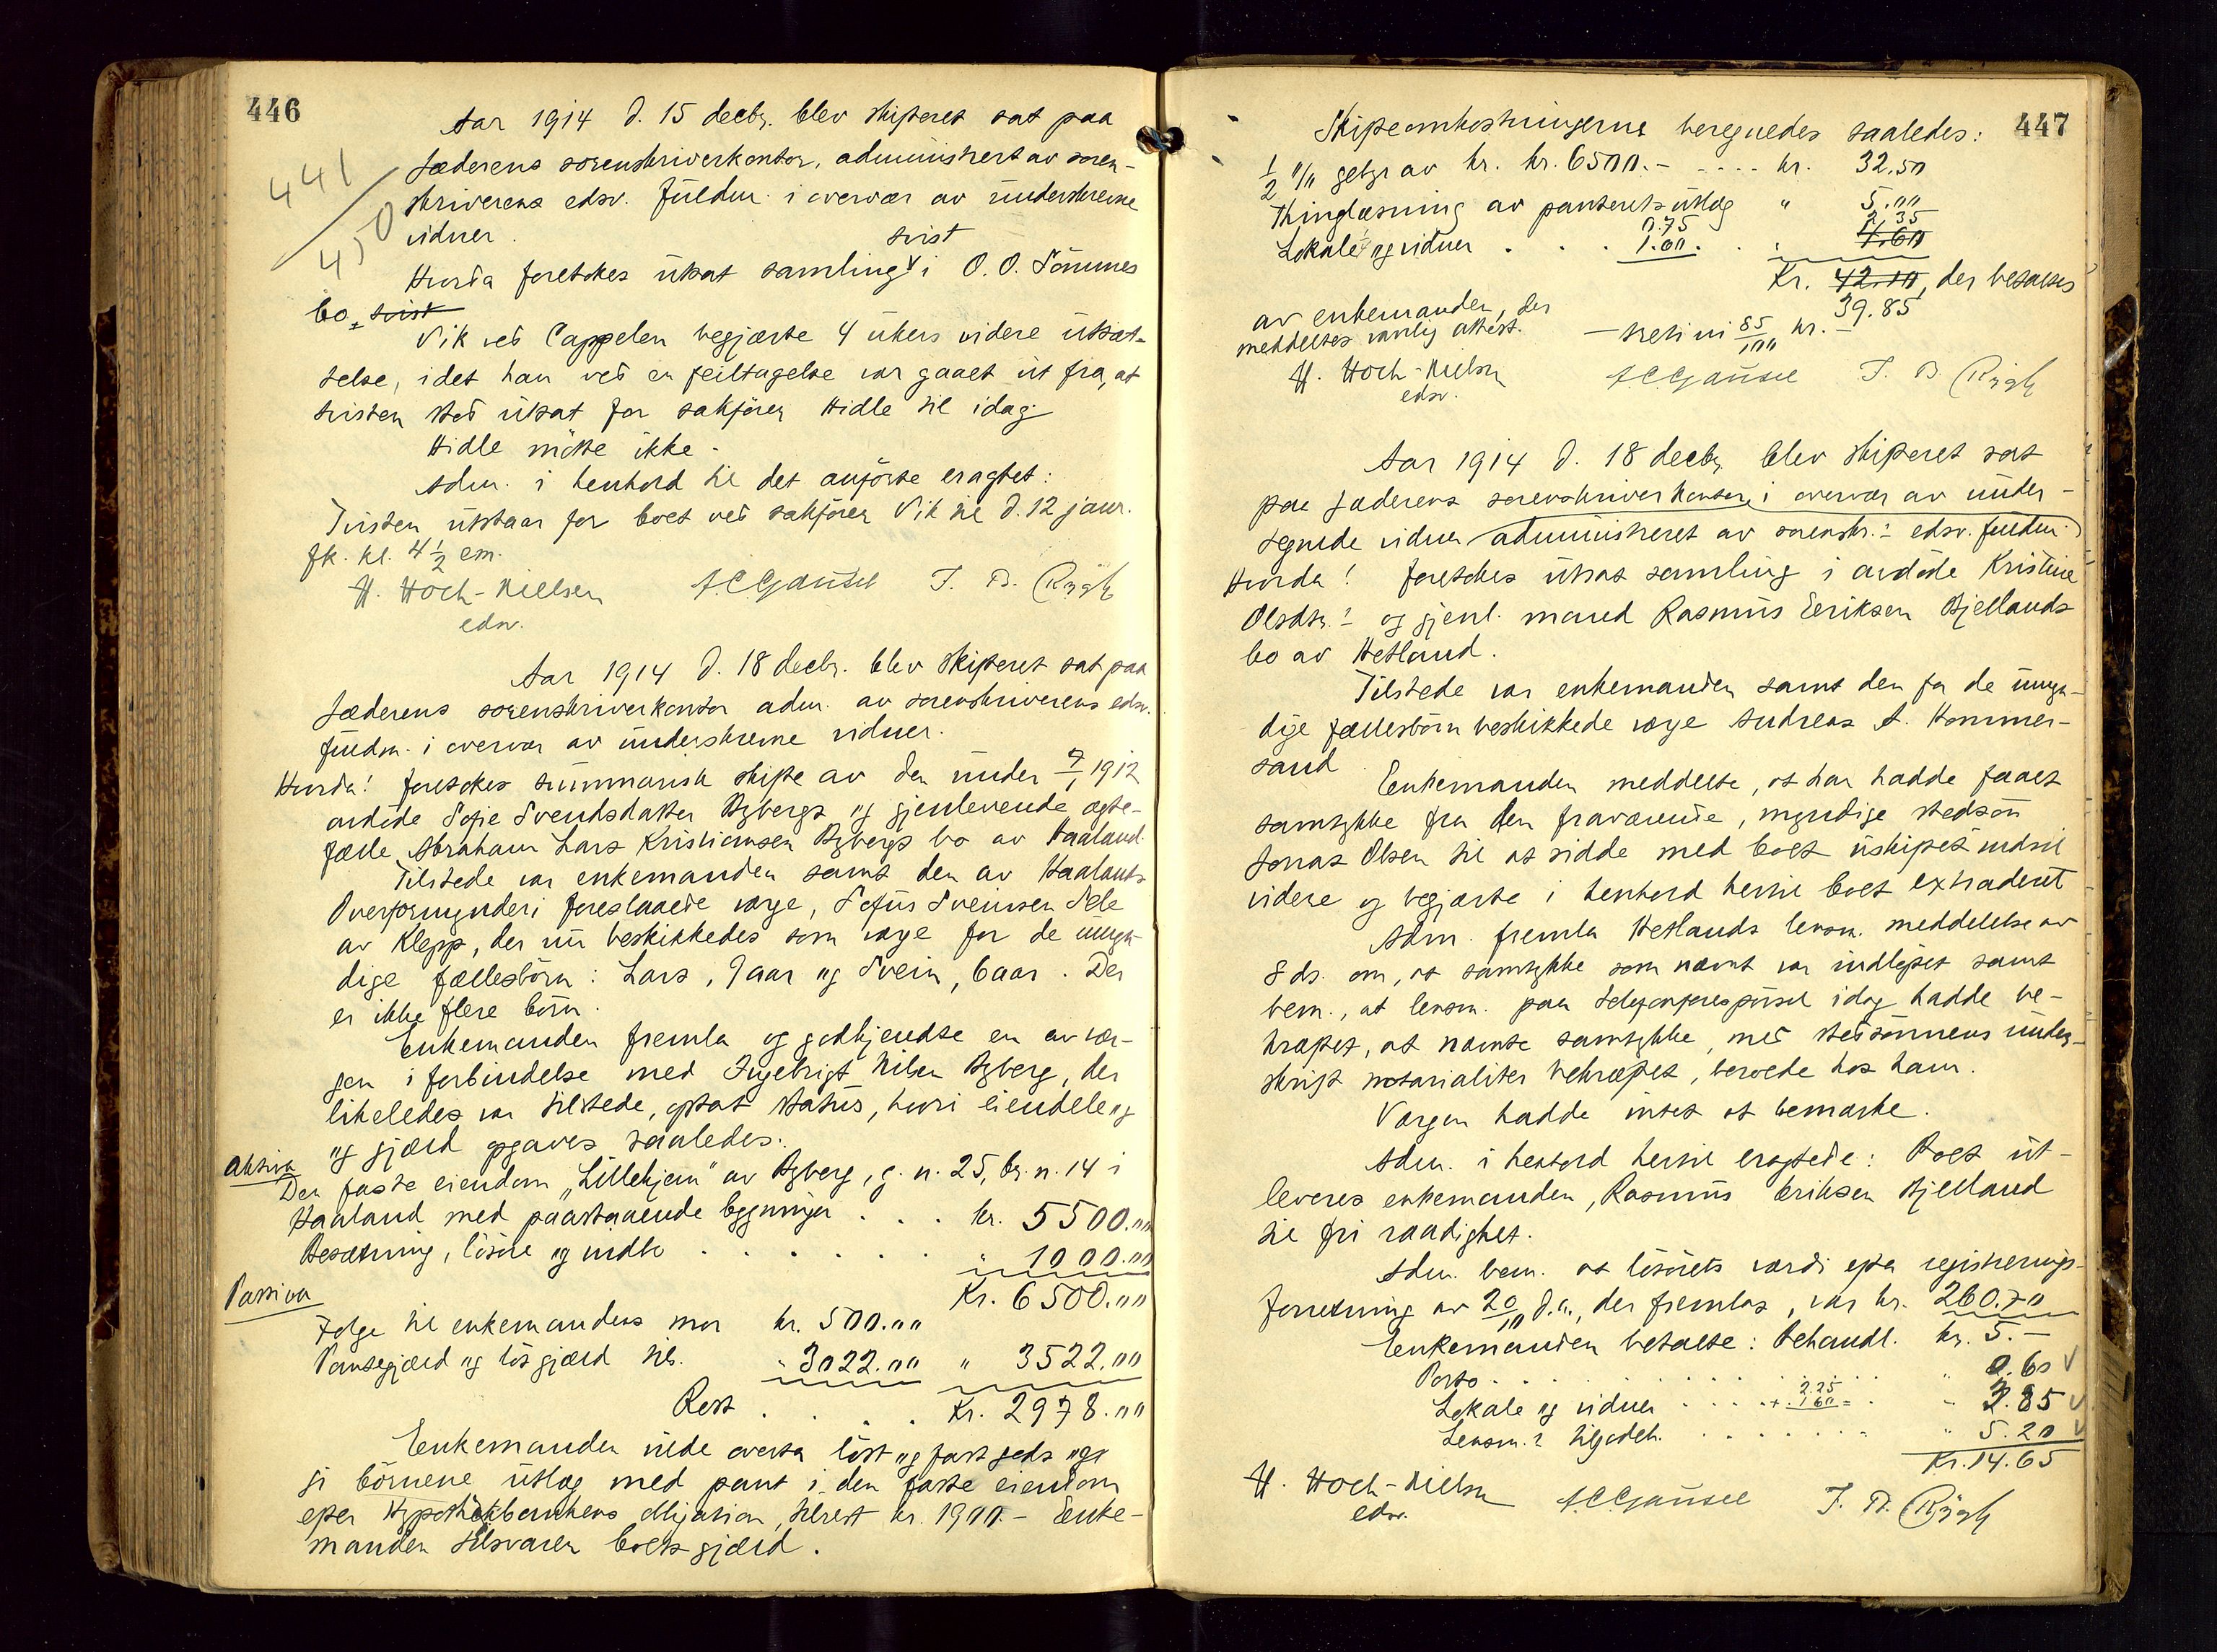 446
Aar 1914 d. 15 decbr. blev skifteret sat paa
Jæderens sorenskriverkontor, administrert av soren-
skriverens edsv. fuldm. i overvær av underskrevne
vidner.
441
450
Hvorda foretokes utsat samling tvist i O. O. Sömmes
bo. tvist
Vik ved Cappelen begjærte 4 ukers videre utsæt-
telse, idet han ved en feiltagelse var gaaet ut fra, at
tvisten stod utsat for sakförer Hidle til idag.
Hidle mötte ikke.
Adm. i henhold til det anförte eragtet:
Tvisten utstaar for boet ved sakförer Vik til d. 12 janr.
fk. kl. 4 1/2 em.
H. Hoch-Nielsen A C Gausel T. B. Rygh
edsv.
Aar 1914 d. 18 decbr. blev skifteret sat paa
Jæderens sorenskriverkontor adm. av sorenskriverens edsv.
fuldm. i overvær av underskrevne vidner.
Hvorda! foretokes summarisk skifte av den under 7/1 1912
avdöde Sofie Svendsdatter Rybergs og gjenlevende ægte-
fælle Abraham Lars Kristiansen Rybergs bo av Haaland.
Tilstede var enkemanden samt den av Haalands
Overformynderi foreslaaede værge, Sofus Sveinsen Sele
av Klepp, der nu beskikkedes som værge for de umyn-
dige fællesbörn: Lars, 9 aar og Svein, 6 aar. Der
er ikke flere börn.
Enkemanden fremla og godkjendte en av vær-
gen i forbindelse med Ingebrigt Nilsen Ryberg, der
likeledes var tilstede, optat status, hvori eiendele og
og gjæld opgaves saaledes.
Aktiva
Den faste eiendom "Lillehjem" av Ryberg, g. n. 25, br. n. 14 i
Haaland med paastaaende bygninger . . . kr. 5500.00
Besætning, lösöre og indbo . . . . . . " 1000.00
Kr. 6500.00
Passiva
Folge til enkemandens mor kr. 500.00
Pantegjæld og lös gjæld tils. " 3022.00 " 3522.00
Rest . . . . Kr. 2978.00
Enkemanden vilde overta löst og fast gods og
gi börnene utlæg med pant i den faste eiendom
efter Hypothekbankens obligation, tilrest kr. 1900.- Enke-
manden tilsvarer boets gjæld.
447
Skifteomkostningerne beregnedes saaledes:
1/2 % gebyr av kr. kr. 6500.- .... kr. 32.50
Thinglæsning av panteretsutlæg " 5.00
Lokale og vidner . . . 0.75 1.60 . . " 2.35 4.60
Kr. 42.10, der betaltes
39.85
av enkemanden, der
meddeltes vanlig attest. — tretini 85/100 kr. —
H. Hoch-Nielsen A C Gausel T. B. Rygh
edsv.
Aar 1914 d. 18 decbr. blev skifteret sat
paa Jæderens sorenskriverkontor i overvær av under-
tegnede vidner administreret av sorenskr.s edsv. fuldm.
Hvorda! foretokes utsat samling i avdöde Kristine
Olsdtr.s og gjenl. mand Rasmus Eeriksen Bjellands
bo av Hetland.
Tilstede var enkemanden samt den for de umyn-
dige fællesbörn beskikkede værge Andreas A. Hommer-
sand.
Enkemanden meddelte, at han hadde faaet
samtykke fra den fraværende, myndige stedsön
Jonas Olsen til at sidde med boet uskiftet indtil
videre og begjærte i henhold hertil boet extradert
Adm. fremla Hetlands lensm. meddelelse av
8 ds. om, at samtykke som nævnt var indlöpet samt
bem., at lensm. paa telefonforespörsel idag hadde be-
kræftet, at nævnte samtykke, med stedsönnens under-
skrift notarialiter bekræftet, beroede hos ham.
Værgen hadde intet at bemærke.
Adm. i henhold hertil eragtede: Boet ut-
leveres enkemanden, Rasmus Eriksen Bjelland
til fri raadighet.
Adm. bem. at lösörets værdi efter registrerings-
forretning av 20/10 d.a., der fremlas, var kr. 260.70
Enkemanden betalte: Behandl. kr. 5.-
Porto . . . . . . . . . . " 0.60
Lokale og vidner . . . . 2.25 + 1.60 = . " 3.85
Lensm.s tilgodeh. . . . . . . " 5.20
Kr. 14.65
H. Hoch-Nielsen A C Gausel T. B. Rygh
edsv.